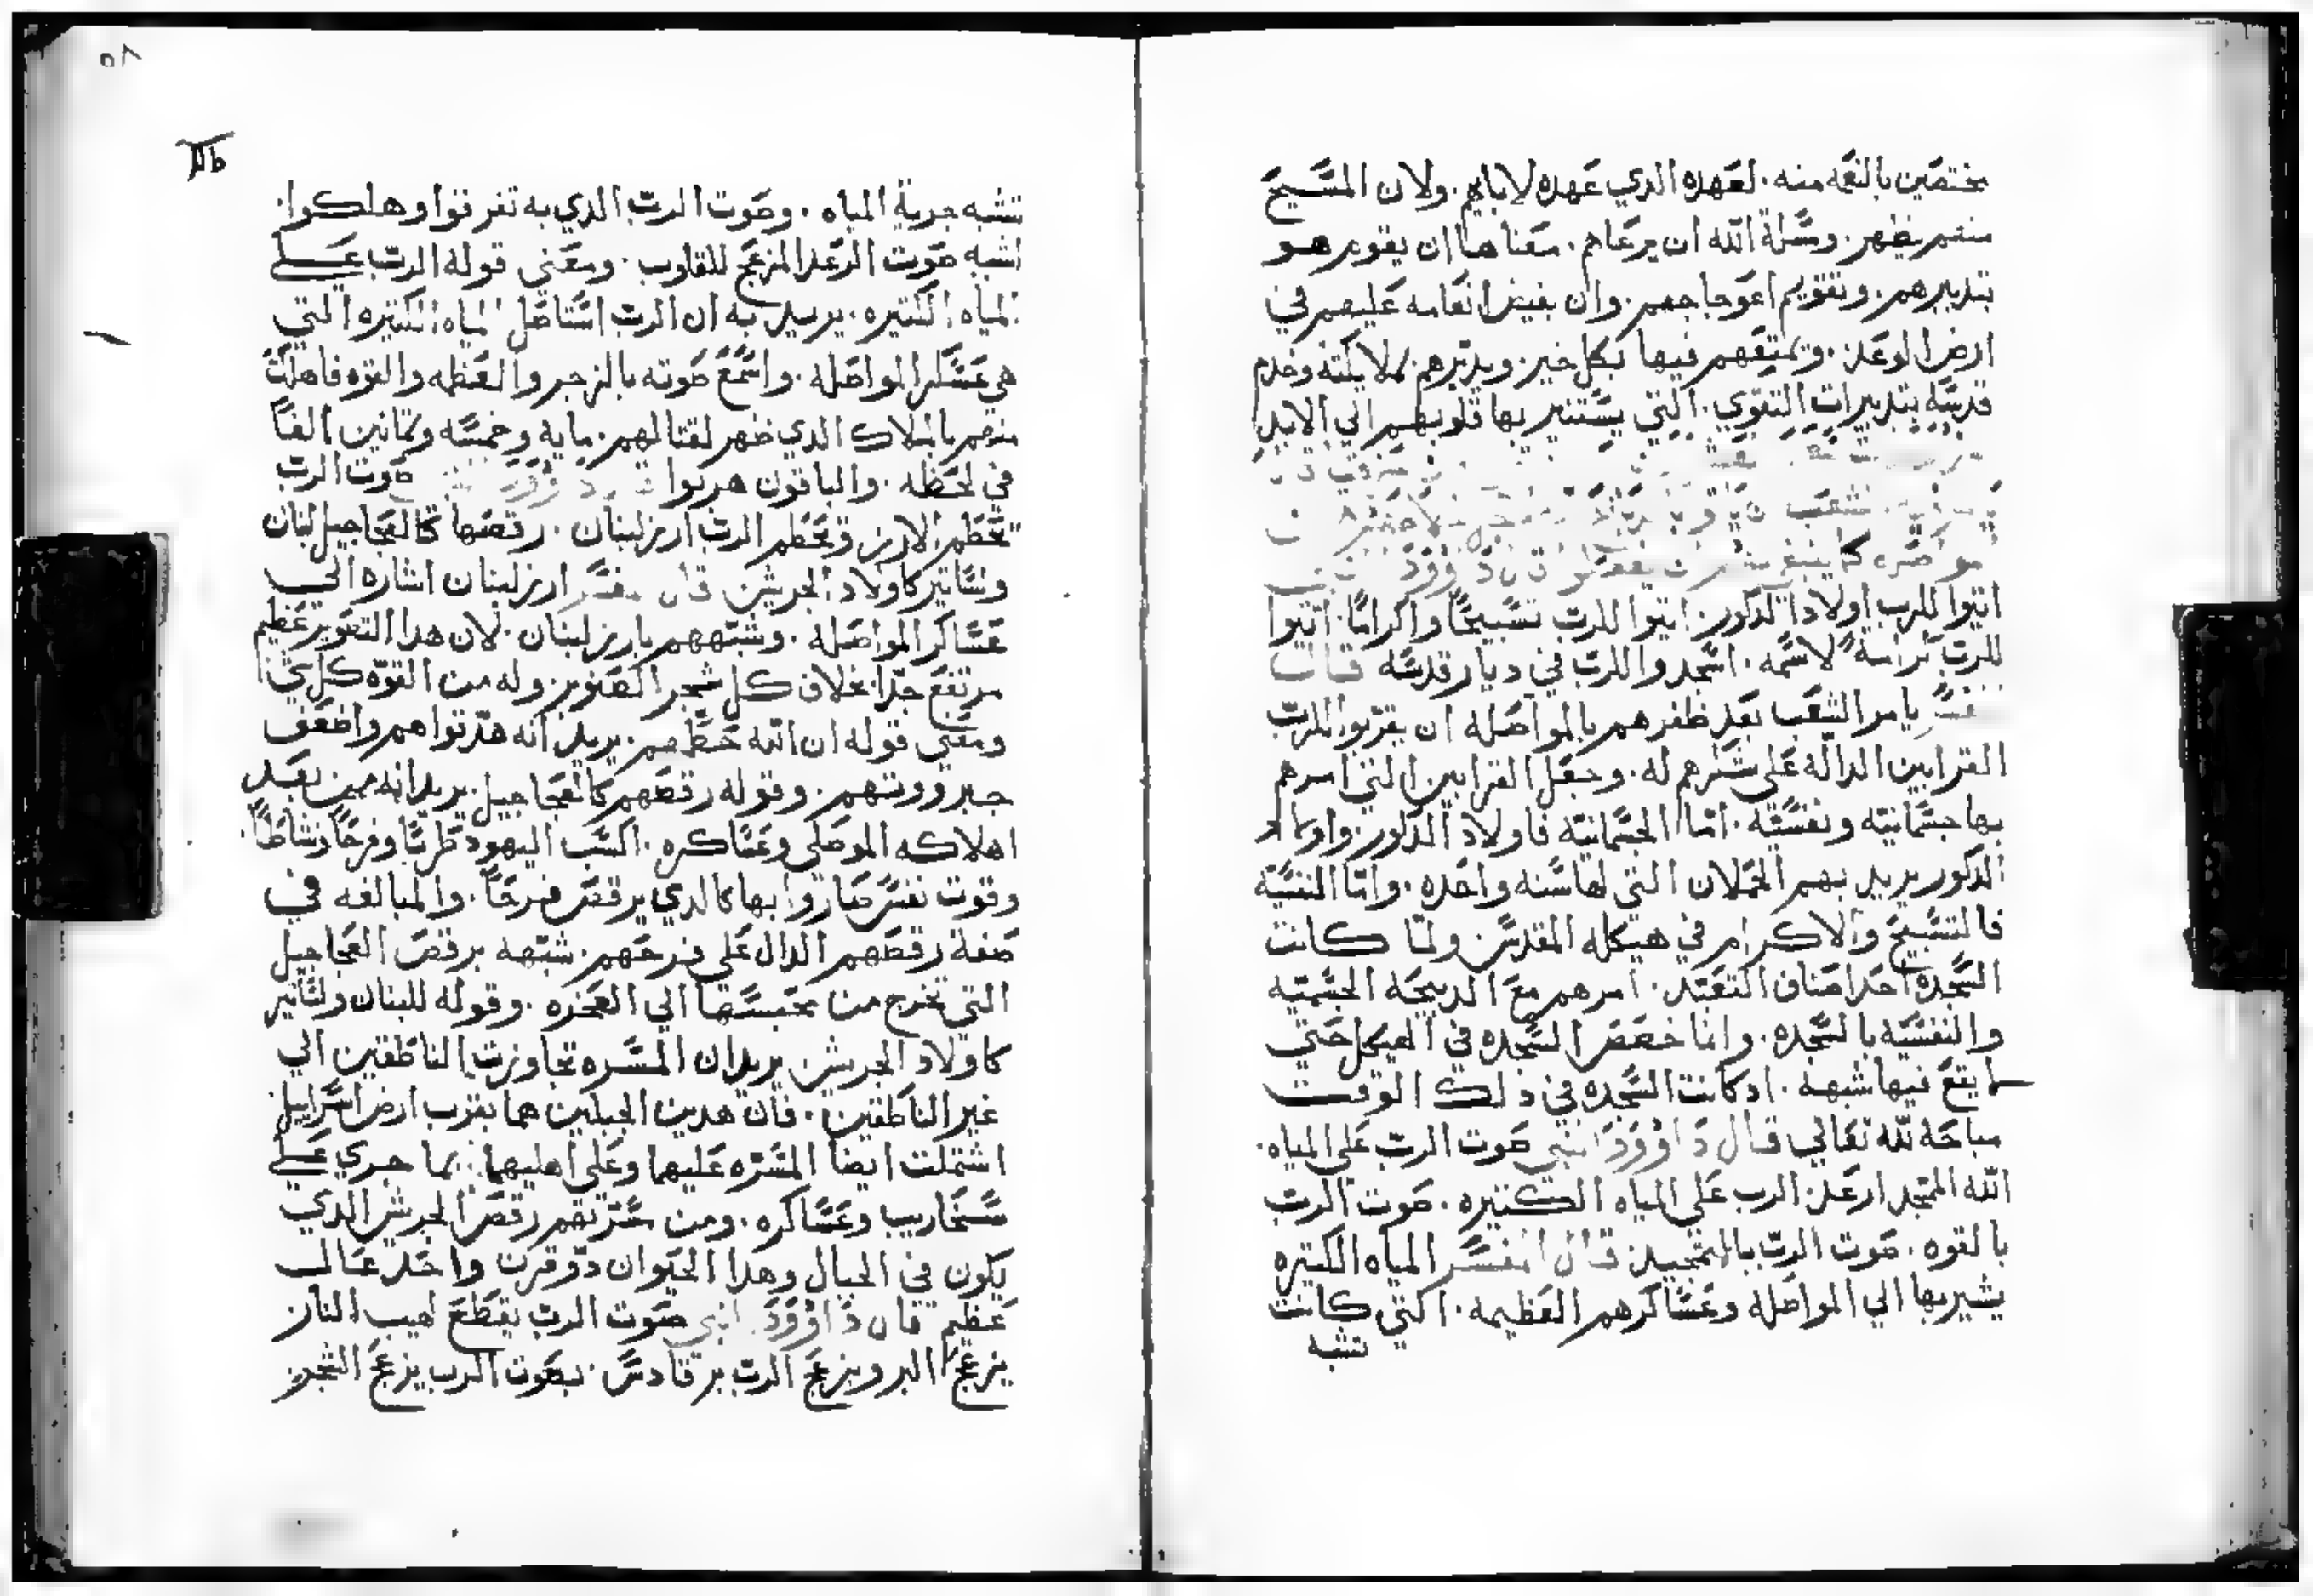 يختصين بالنعمه منه. لعهده الدي عهده لابايهم. ولان المسيح
منهم يظهر. ومسلة الله ان يرعاهم. معناها ان يقوم هو
بتدبيرهم. وتقويم اعوجاجهم. وان يفيض انعامه عليهم في
ارض الوعد. ويمتعهم فيها بكل خير. ويدبرهم بملايكته وخدم
قدسه بتدبيرات التقوي. التي يستنير بها قلوبهم الي الابد
كما ينبغي قال داوود
ايتوا للرب اولاد الدكور. ايتوا للرب تسبيحًا واكرامًا. ايتوا
للرب كرامة لاسمه. اسجدوا للرب في ديار قدسه قال
المفسر يامر الشعب بعد ظفرهم بالمواصله ان يقربوا للرب
القرابين الدالة علي شكرهم له. وجعل القرابين التي امرهم
بها جسمانيه ونفسيه. اما الجسمانيه فاولاد الدكور. واولاد
الدكور يريد بهم الحملان التي لها سنه واحده. واما النفسيه
فالتسبيح والاكرام في هيكله المقدس. ولما كانت
السجده احد اصناف التعبد. امرهم مع الدبيحه الجسميه
والنفسيه بالسجده. وانما خصص السجده في الهيكل حتي
لا يقع فيها شبهه. ادكانت السجده في دلك الوقت
مباحه لله تعالي قال داوود النبي صوت الرب علي المياه.
الله الممجد ارعد. الرب علي المياه الكثيره. صوت الرب
بالقوه. صوت الرب بالتمجيد. قال المفسر المياه الكثيره
يشير بها الي المواصله وعساكرهم العظيمه. التي كانت
تشبه
٥٨
11b
تشبه جرية المياه. وصوت الرب الدي به تفرقوا وهلكوا.
اشبه صوت الرعد المزعج للقلوب. ومعني قوله الرب علي
المياه الكثيره. يريد به ان الرب استاصل المياه الكثيره التي
هي عسكر المواصله. واسمع صوته بالزجر والعظمه والقوه فاهلك
منهم بالملاك الدي ظهر لقتالهم. مايه وخمسه وثمانين الفًا
في لحظه. والباقون هربوا قال داوود النبي صوت الرب
يحطم الارز. ويحطم الرب ارز لبنان. رقصها كالعجاجيل لبنان
وسانير كاولاد الجريش قال مفسر ارز لبنان اشاره الي
عساكر المواصله. وشبههم بارز لبنان. لان هدا الصنوبر عظيم
مرتفع جدًا بخلاف كل شجر الصنوبر. وله من القوه كل شي
ومعني قوله ان الله حطمهم. يريد انه هد قواهم واضعف
جبرووتهم. وقوله رقصهم كالعجاجيل. يريد انه من بعد
اهلاكه الموصلي وعساكره. اكسب اليهود طربًا وفرحًا ونشاطًا.
وقوت نفس صاروا بها كالدي يرقص فرحًا. والمبالغه في
صفة رقصهم الدال علي فرحهم. شبهه برقص العجاجيل
التي تخرج من محبسها الي الصخره. وقوله للبنان ولسانير
كاولاد الجريش. يريد ان المسره تجاوزت الناطقين الي
غير الناطقين. فان هدين الجبلين هما بقرب ارض اسراييل
اشتملت ايضا المسره عليهما وعلي اهليهما. بما جري علي
سنحاريب وعساكره. ومن مسرتهم رقص الجريش الدي
يكون في الجبال وهدا الحيوان دو قرن واحد عال
عظيم قال داوود النبي صوت الرب يقطع لهيب النار
يزعج البر ويزعج الرب بر قادس. بصوت الرب يزعج الشجر